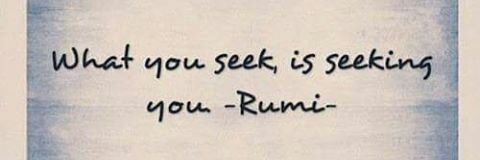 What you seek, is seeking
you. -Rumi-